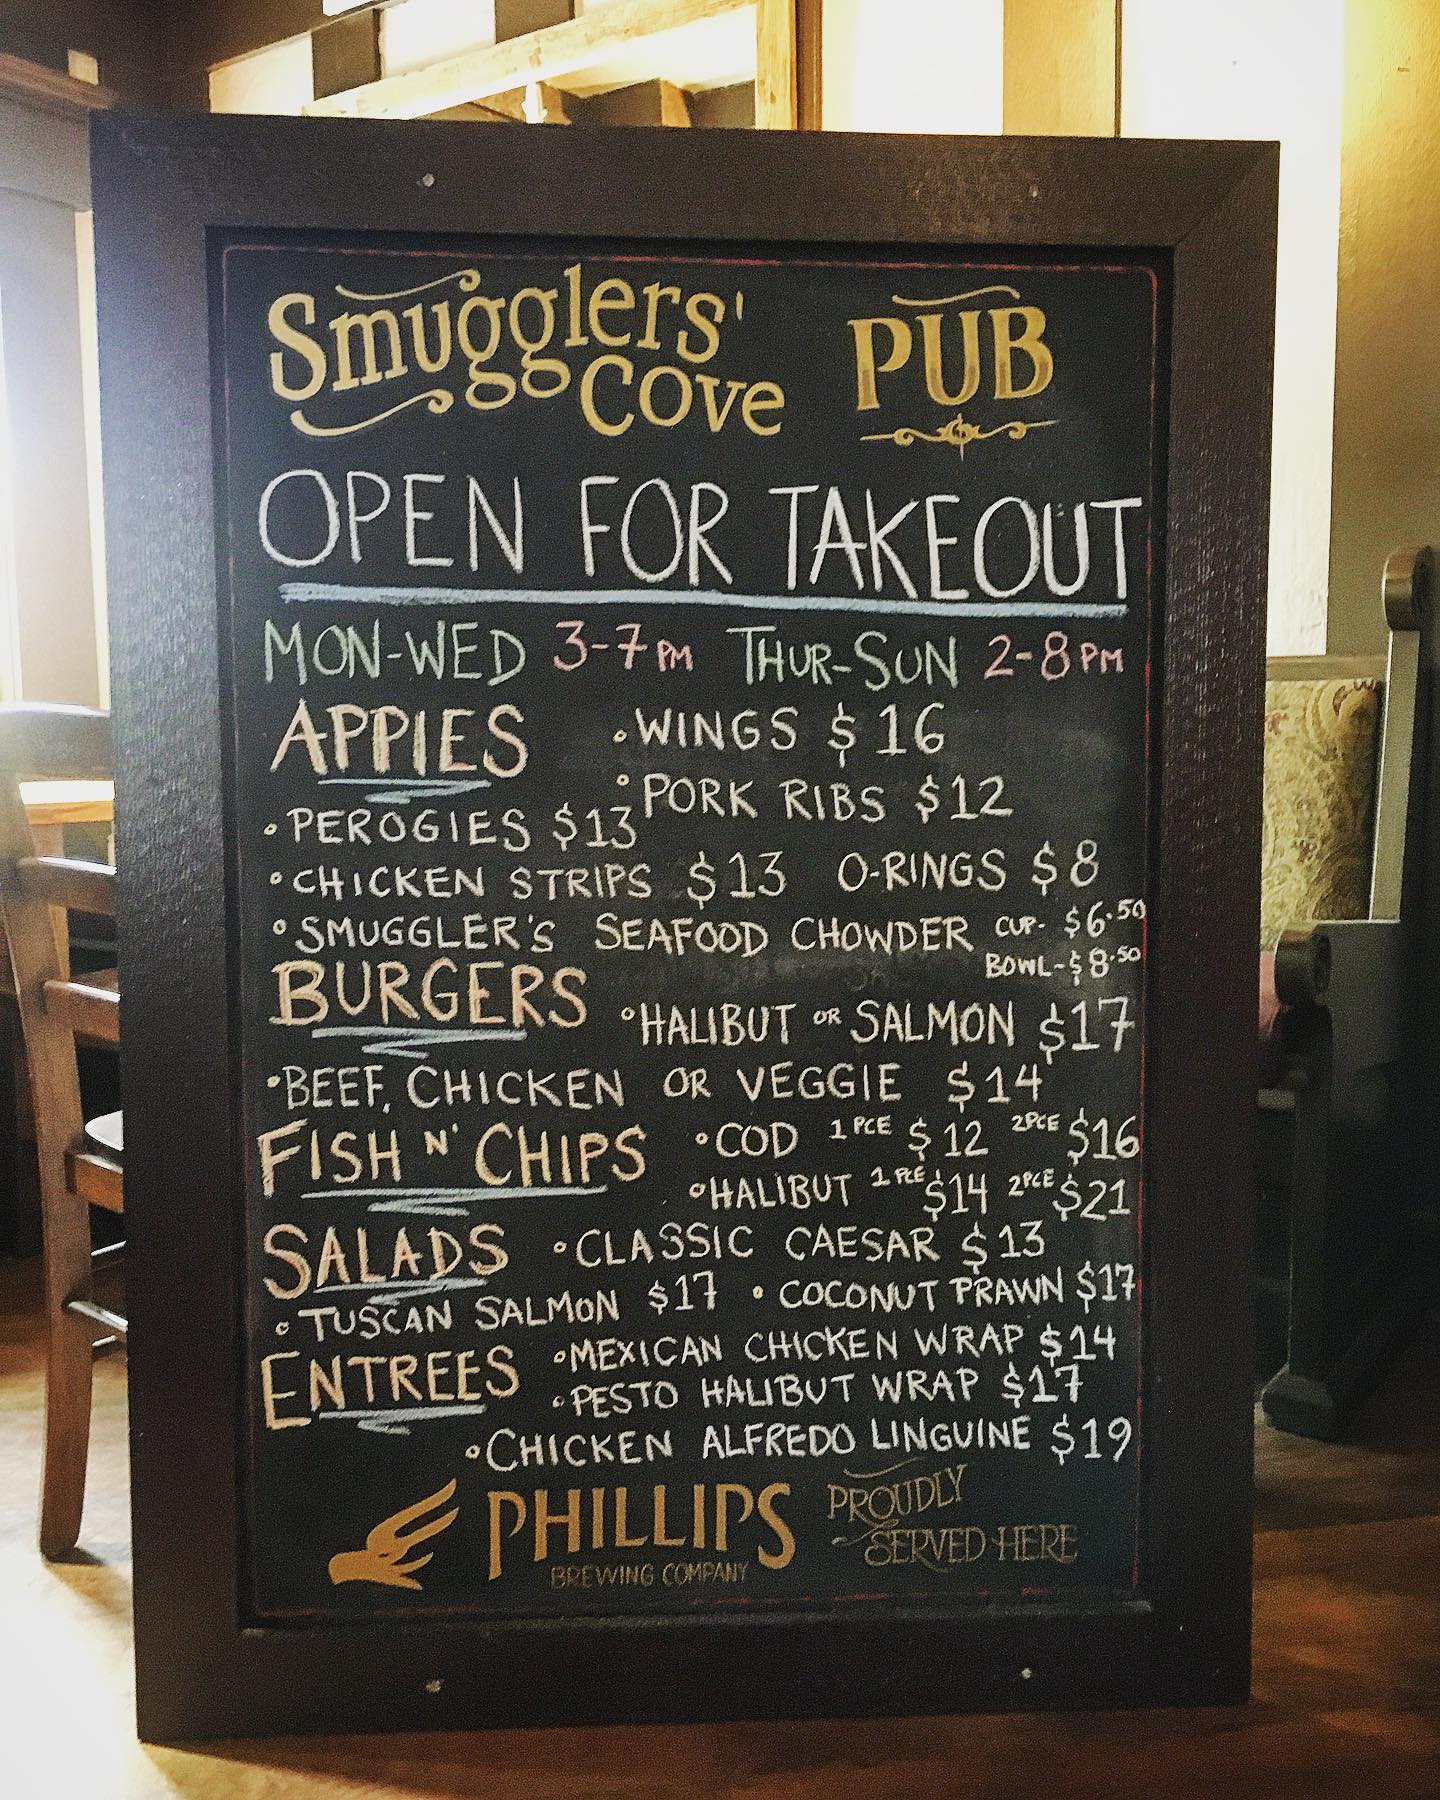 Smugglers' Cove PUB
OPEN FOR TAKEOUT
MON-WED 3-7PM THUR-SUN 2-8PM
APPIES
• WINGS $16
• PORK RIBS $12
• PEROGIES $13
• CHICKEN STRIPS $13 O-RINGS $8
• SMUGGLER'S SEAFOOD CHOWDER CUP- $6.50
BOWL-$8.50
BURGERS
• HALIBUT OR SALMON $17
• BEEF, CHICKEN OR VEGGIE $14
FISH N' CHIPS
• COD 1PCE $12 2PCE $16
• HALIBUT 1PCE $14 2PCE $21
SALADS
• CLASSIC CAESAR $13
• TUSCAN SALMON $17 • COCONUT PRAWN $17
ENTREES
• MEXICAN CHICKEN WRAP $14
• PESTO HALIBUT WRAP $17
• CHICKEN ALFREDO LINGUINE $19
PHILLIPS
BREWING COMPANY
PROUDLY
SERVED HERE